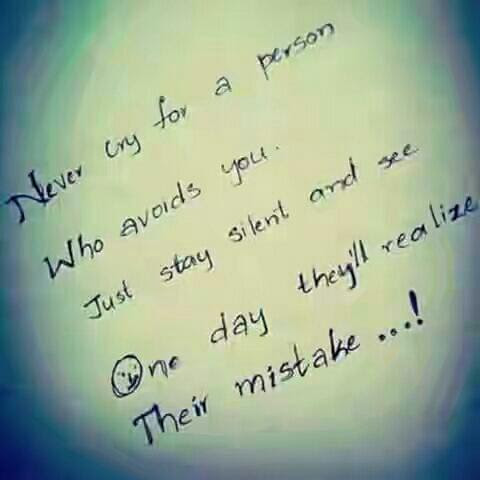 Never cry for a person
Who avoids you.
Just stay silent and see
One day they'll realize
Their mistake ...!